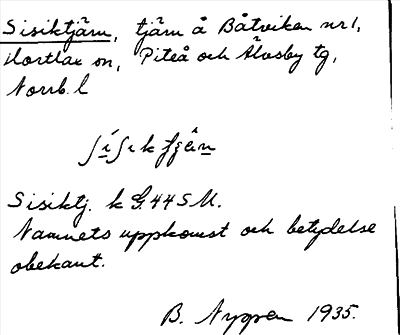 Sisiktjärn, tjärn å Båtviken nr 1,
Hortlax sn, Piteå och Älvsby tg,
Norrb. l
Sisiktj. k G.44 S M.
Namnets uppkomst och betydelse
obekant.
B. Nygren 1935.